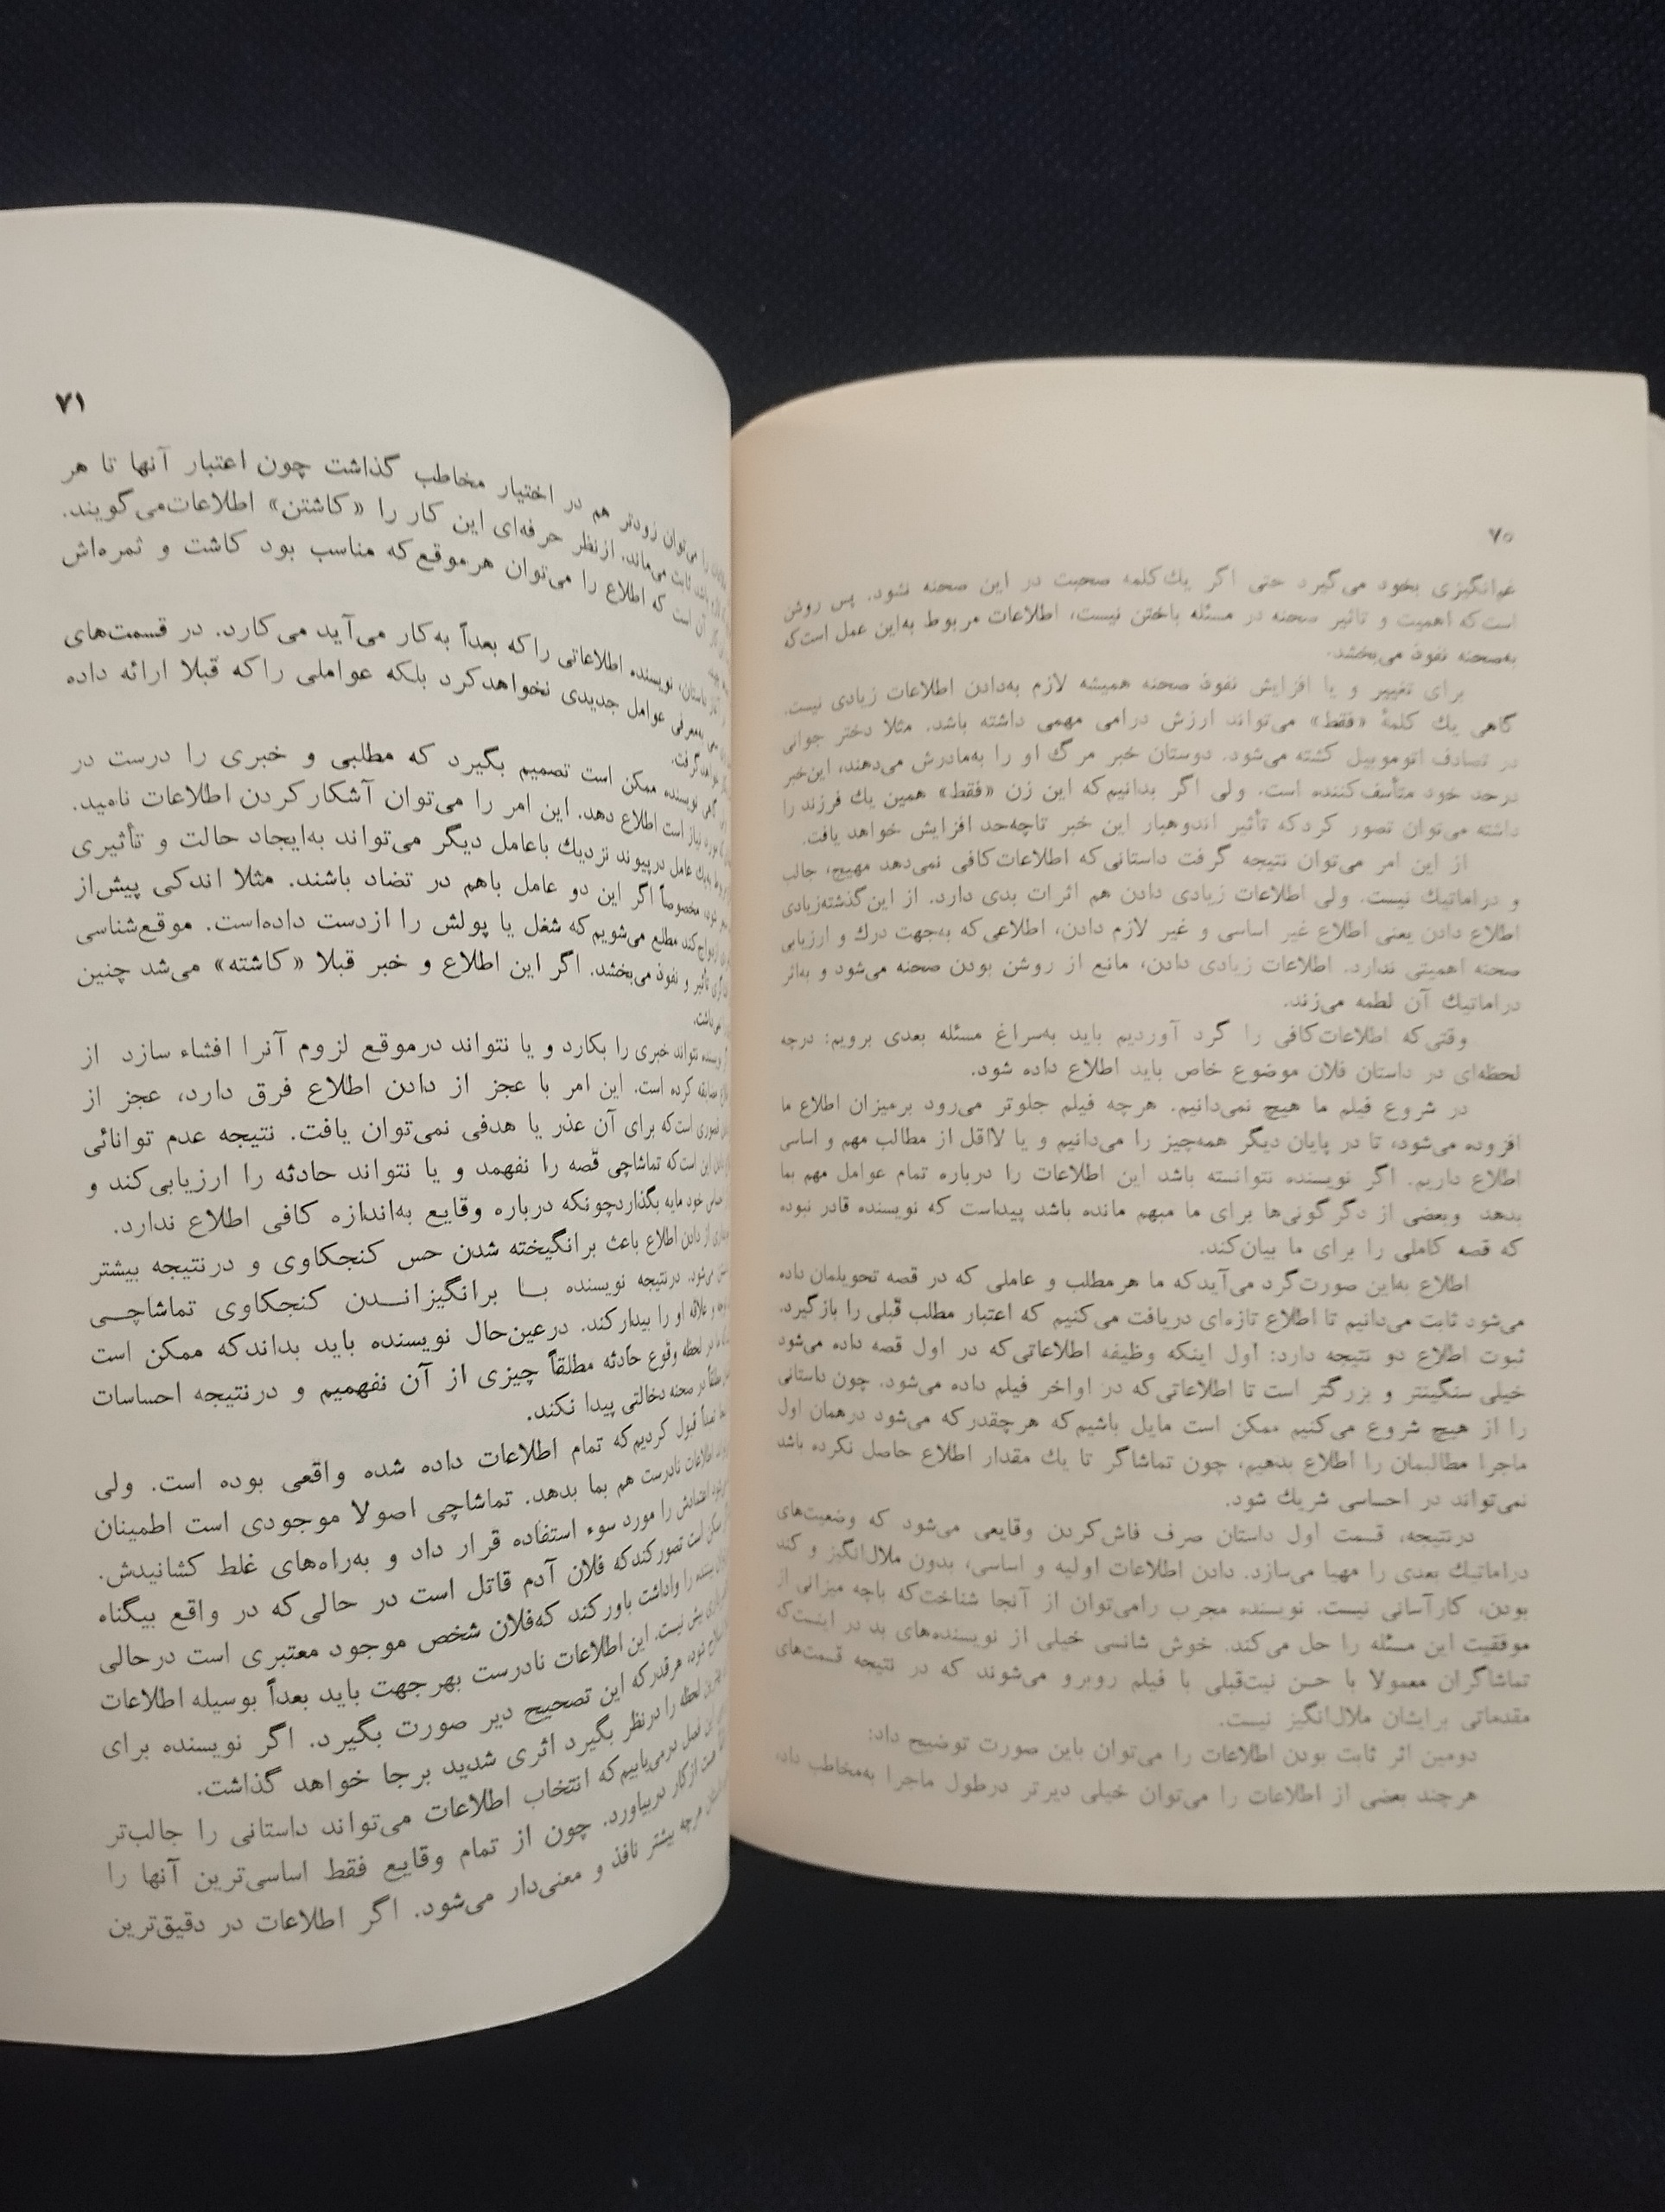 ۷۰
غم‌انگیزی بخود می‌گیرد حتی اگر یك‌کلمه صحبت در این صحنه نشود. پس روشن
است‌که اهمیت و تاثیر صحنه در مسئله باختن نیست، اطلاعات مربوط به‌این عمل است‌که
به‌صحنه نفوذ می‌بخشد.
برای تغییر و یا افزایش نفوذ صحنه همیشه لازم به‌دادن اطلاعات زیادی نیست.
گاهی یك کلمهٔ «فقط» می‌تواند ارزش درامی مهمی داشته باشد. مثلا دختر جوانی
در تصادف اتوموبیل کشته می‌شود. دوستان خبر مرگ او را به‌مادرش می‌دهند، این‌خبر
درحد خود متأسف‌کننده است. ولی اگر بدانیم‌که این زن «فقط» همین یك فرزند را
داشته می‌توان تصور کردکه تأثیر اندوهبار این خبر تاچه‌حد افزایش خواهد یافت.
از این امر می‌توان نتیجه گرفت داستانی‌که اطلاعات‌کافی نمی‌دهد مهیج، جالب
و دراماتیك نیست. ولی اطلاعات زیادی دادن هم اثرات بدی دارد. از این‌گذشته‌زیادی
اطلاع دادن یعنی اطلاع غیر اساسی و غیر لازم دادن، اطلاعی‌که به‌جهت درك و ارزیابی
صحنه اهمیتی ندارد. اطلاعات زیادی دادن، مانع از روشن بودن صحنه می‌شود و به‌اثر
دراماتیك آن لطمه می‌زند.
وقتی‌که اطلاعات‌کافی را گرد آوردیم باید به‌سراغ مسئله بعدی برویم: درچه
لحظه‌ای در داستان فلان موضوع خاص باید اطلاع داده شود.
در شروع فیلم ما هیچ نمی‌دانیم. هرچه فیلم جلوتر می‌رود برمیزان اطلاع ما
افزوده می‌شود، تا در پایان دیگر همه‌چیز را می‌دانیم و یا لااقل از مطالب مهم و اساسی
اطلاع داریم. اگر نویسنده نتوانسته باشد این اطلاعات را درباره تمام عوامل مهم بما
بدهد وبعضی از دگرگونی‌ها برای ما مبهم مانده باشد پیداست که نویسنده قادر نبوده
که قصه کاملی را برای ما بیان‌کند.
اطلاع به‌این صورت‌گرد می‌آیدکه ما هرمطلب و عاملی که در قصه تحویلمان داده
می‌شود ثابت می‌دانیم تا اطلاع تازه‌ای دریافت می‌کنیم که اعتبار مطلب قبلی را بازگیرد.
ثبوت اطلاع دو نتیجه دارد: اول اینکه وظیفه اطلاعاتی‌که در اول قصه داده می‌شود
خیلی سنگینتر و بزرگتر است تا اطلاعاتی‌که در اواخر فیلم داده می‌شود. چون داستانی
را از هیچ شروع می‌کنیم ممکن است مایل باشیم‌که هرچقدرکه می‌شود درهمان اول
ماجرا مطالبمان را اطلاع بدهیم، چون تماشاگر تا یك مقدار اطلاع حاصل نکرده باشد
نمی‌تواند در احساسی شریك شود.
درنتیجه، قسمت اول داستان صرف فاش‌کردن وقایعی می‌شود که وضعیت‌های
دراماتیك بعدی را مهیا می‌سازد. دادن اطلاعات اولیه و اساسی، بدون ملال‌انگیز و کند
بودن، کارآسانی نیست. نویسنده مجرب رامی‌توان از آنجا شناخت‌که باچه میزانی از
موفقیت این مسئله را حل می‌کند. خوش شانسی خیلی از نویسنده‌های بد در اینست‌که
تماشاگران معمولا با حسن نیت‌قبلی با فیلم روبرو می‌شوند که در نتیجه قسمت‌های
مقدماتی برایشان ملال‌انگیز نیست.
دومین اثر ثابت بودن اطلاعات را می‌توان باین صورت توضیح داد:
هرچند بعضی از اطلاعات را می‌توان خیلی دیرتر درطول ماجرا به‌مخاطب داد،
۷۱
را می‌توان زودتر هم در اختیار مخاطب گذاشت چون اعتبار آنها تا هر
ثابت می‌ماند. ازنظر حرفه‌ای این کار را «کاشتن» اطلاعات‌می‌گویند.
آن است که اطلاع را می‌توان هرموقع‌که مناسب بود کاشت و ثمره‌اش
داستان، نویسنده اطلاعاتی راکه بعداً به‌کار می‌آید می‌کارد. در قسمت‌های
به‌معرفی عوامل جدیدی نخواهدکرد بلکه عواملی راکه قبلا ارائه داده
خواهدگرفت.
گاهی نویسنده ممکن است تصمیم بگیرد که مطلبی و خبری را درست در
نیاز است اطلاع دهد. این امر را می‌توان آشکارکردن اطلاعات نامید.
عامل درپیوند نزدیك باعامل دیگر می‌تواند به‌ایجاد حالت و تأثیری
مخصوصاً اگر این دو عامل باهم در تضاد باشند. مثلا اندکی پیش‌از
مطلع می‌شویم‌که شغل یا پولش را ازدست داده‌است. موقع‌شناسی
تأثیر و نفوذ می‌بخشد. اگر این اطلاع و خبر قبلا «کاشته» می‌شد چنین
نمی‌داشت.
نتواند خبری را بکارد و یا نتواند درموقع لزوم آنرا افشاء سازد از
کرده است. این امر با عجز از دادن اطلاع فرق دارد، عجز از
است‌که برای آن عذر یا هدفی نمی‌توان یافت. نتیجه عدم توانائی
این است‌که تماشاچی قصه را نفهمد و یا نتواند حادثه را ارزیابی‌کند و
خود مایه بگذاردچونکه درباره وقایع به‌اندازه کافی اطلاع ندارد.
از دادن اطلاع باعث برانگیخته شدن حس کنجکاوی و درنتیجه بیشتر
می‌شود. درنتیجه نویسنده بـا برانگیزانـدن کنجکاوی تماشاچـی
و علاقه او را بیدارکند. درعین‌حال نویسنده باید بداندکه ممکن است
در لحظه وقوع حادثه مطلقاً چیزی از آن نفهمیم و درنتیجه احساسات
در صحنه دخالتی پیدا نکند.
قبول کردیم‌که تمام اطلاعات داده شده واقعی بوده است. ولی
اطلاعات نادرست هم بما بدهد. تماشاچی اصولا موجودی است اطمینان
اعتمادش را مورد سوء استفاده قرار داد و به‌راه‌های غلط کشانیدش.
ممکن است تصورکندکه فلان آدم قاتل است در حالی‌که در واقع بیگناه
را واداشت باورکند که‌فلان شخص موجود معتبری است درحالی
بیش نیست. این اطلاعات نادرست بهرجهت باید بعداً بوسیله اطلاعات
شود، هرقدرکه این تصحیح دیر صورت بگیرد. اگر نویسنده برای
لحظه را درنظر بگیرد اثری شدید برجا خواهد گذاشت.
فصل درمی‌یابیم‌که انتخاب اطلاعات می‌تواند داستانی را جالب‌تر
ازکار دربیاورد. چون از تمام وقایع فقط اساسی‌ترین آنها را
هرچه بیشتر نافذ و معنی‌دار می‌شود. اگر اطلاعات در دقیق‌ترین